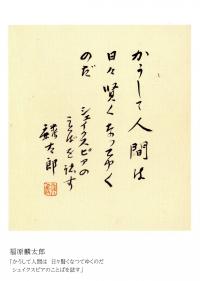 かうして人間は
日々賢くなつてゆく
のだ
シェイクスピアの
ことばを誌す
麟太郎
福原麟太郎
「かうして人間は 日々賢くなつてゆくのだ
シェイクスピアのことばを誌す」